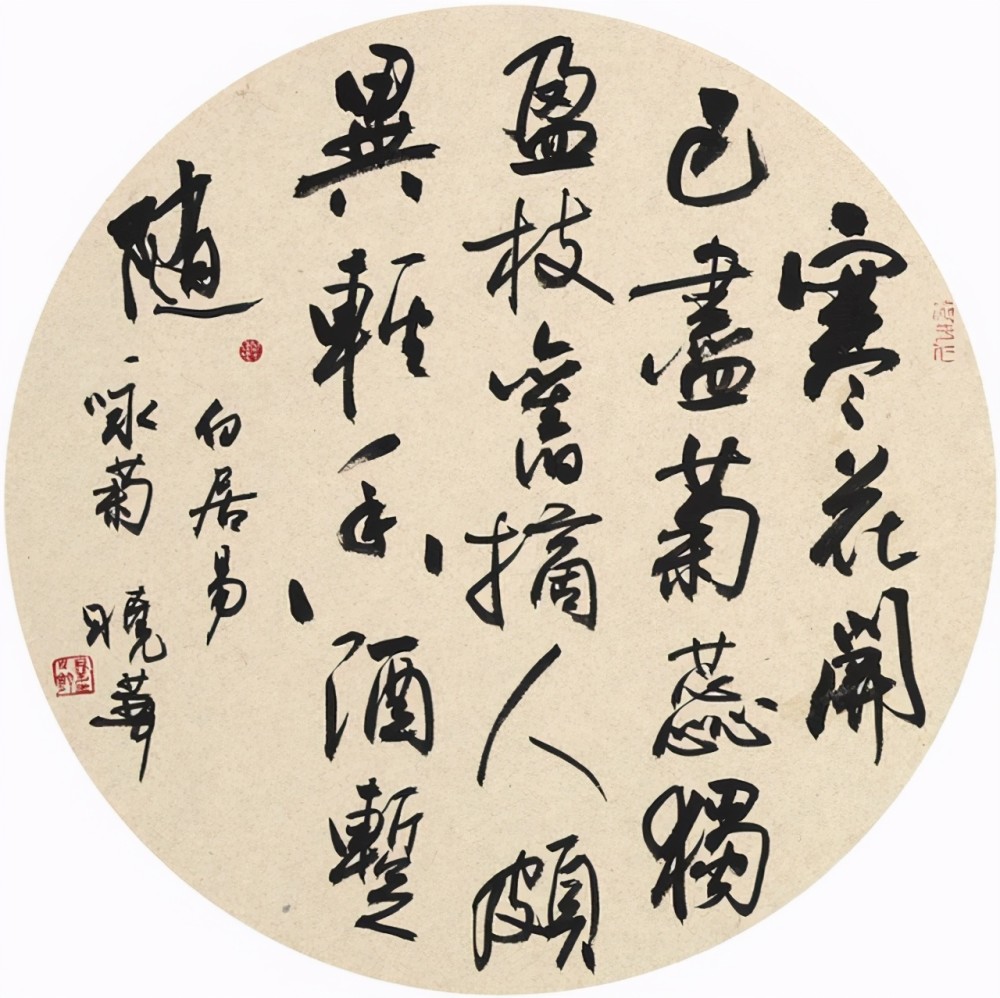 寒花開
已盡菊蕊獨
盈枝舊摘人頗
異輕香酒暫
隨
白居易
咏菊 曉華